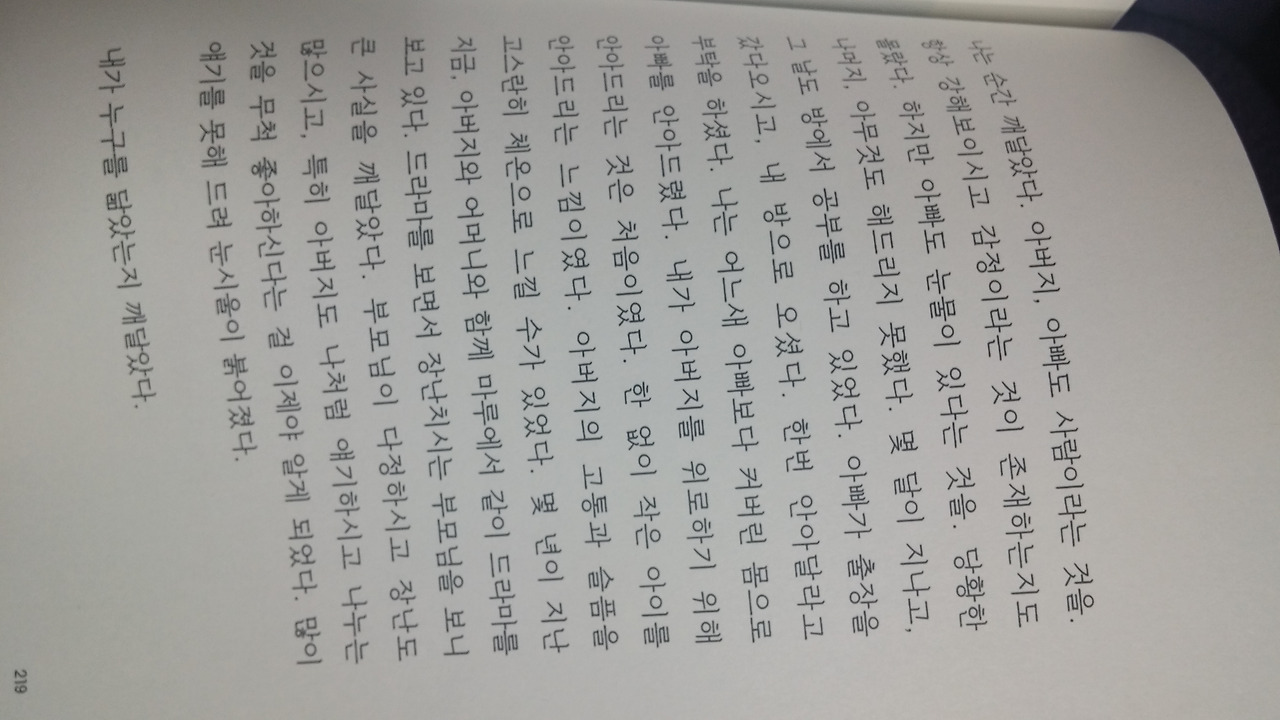 나는 순간 깨달았다. 아버지, 아빠도 사람이라는 것을.
항상 강해보이시고 감정이라는 것이 존재하는지도
몰랐다. 하지만 아빠도 눈물이 있다는 것을. 당황한
나머지, 아무것도 해드리지 못했다. 몇 달이 지나고,
그 날도 방에서 공부를 하고 있었다. 아빠가 출장을
갔다오시고, 내 방으로 오셨다. 한번 안아달라고
부탁을 하셨다. 나는 어느새 아빠보다 커버린 몸으로
아빠를 안아드렸다. 내가 아버지를 위로하기 위해
안아드리는 것은 처음이였다. 한 없이 작은 아이를
안아드리는 느낌이였다. 아버지의 고통과 슬픔을
고스란히 체온으로 느낄 수가 있었다. 몇 년이 지난
지금, 아버지와 어머니와 함께 마루에서 같이 드라마를
보고 있다. 드라마를 보면서 장난치시는 부모님을 보니
큰 사실을 깨달았다. 부모님이 다정하시고 장난도
많으시고, 특히 아버지도 나처럼 얘기하시고 나누는
것을 무척 좋아하신다는 걸 이제야 알게 되었다. 많이
얘기를 못해 드려 눈시울이 붉어졌다.
내가 누구를 닮았는지 깨달았다.
219